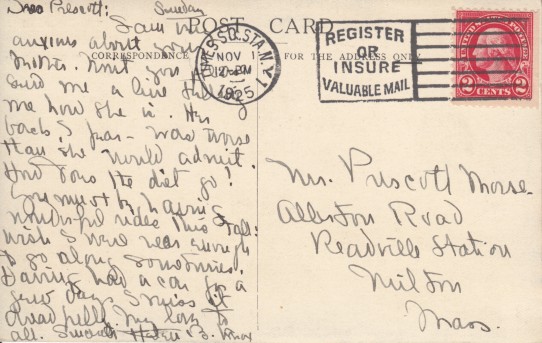 Dear Prescott: Sunday
POST CARD
I am
anxious about your
mother. Won't you
CORRESPONDENCE
FOR THE ADDRESS ONLY
send me a line
me how she is. Her
back I fear was worse
than she would admit.
And does the diet go!
you must be having
wonderful rides this Fall:
wish I were near enough
to go along sometimes.
Having had a car for a
few days I miss it
dreadfully. My love to
all. Sincerely Helen B. Knox
TIMES SQ. STA. N.Y.
NOV 1
12 PM
1925
REGISTER
OR
INSURE
VALUABLE MAIL
2 CENTS 2
Mr. Prescott Morse
Allerton Road
Readville Station
Milton
Mass.